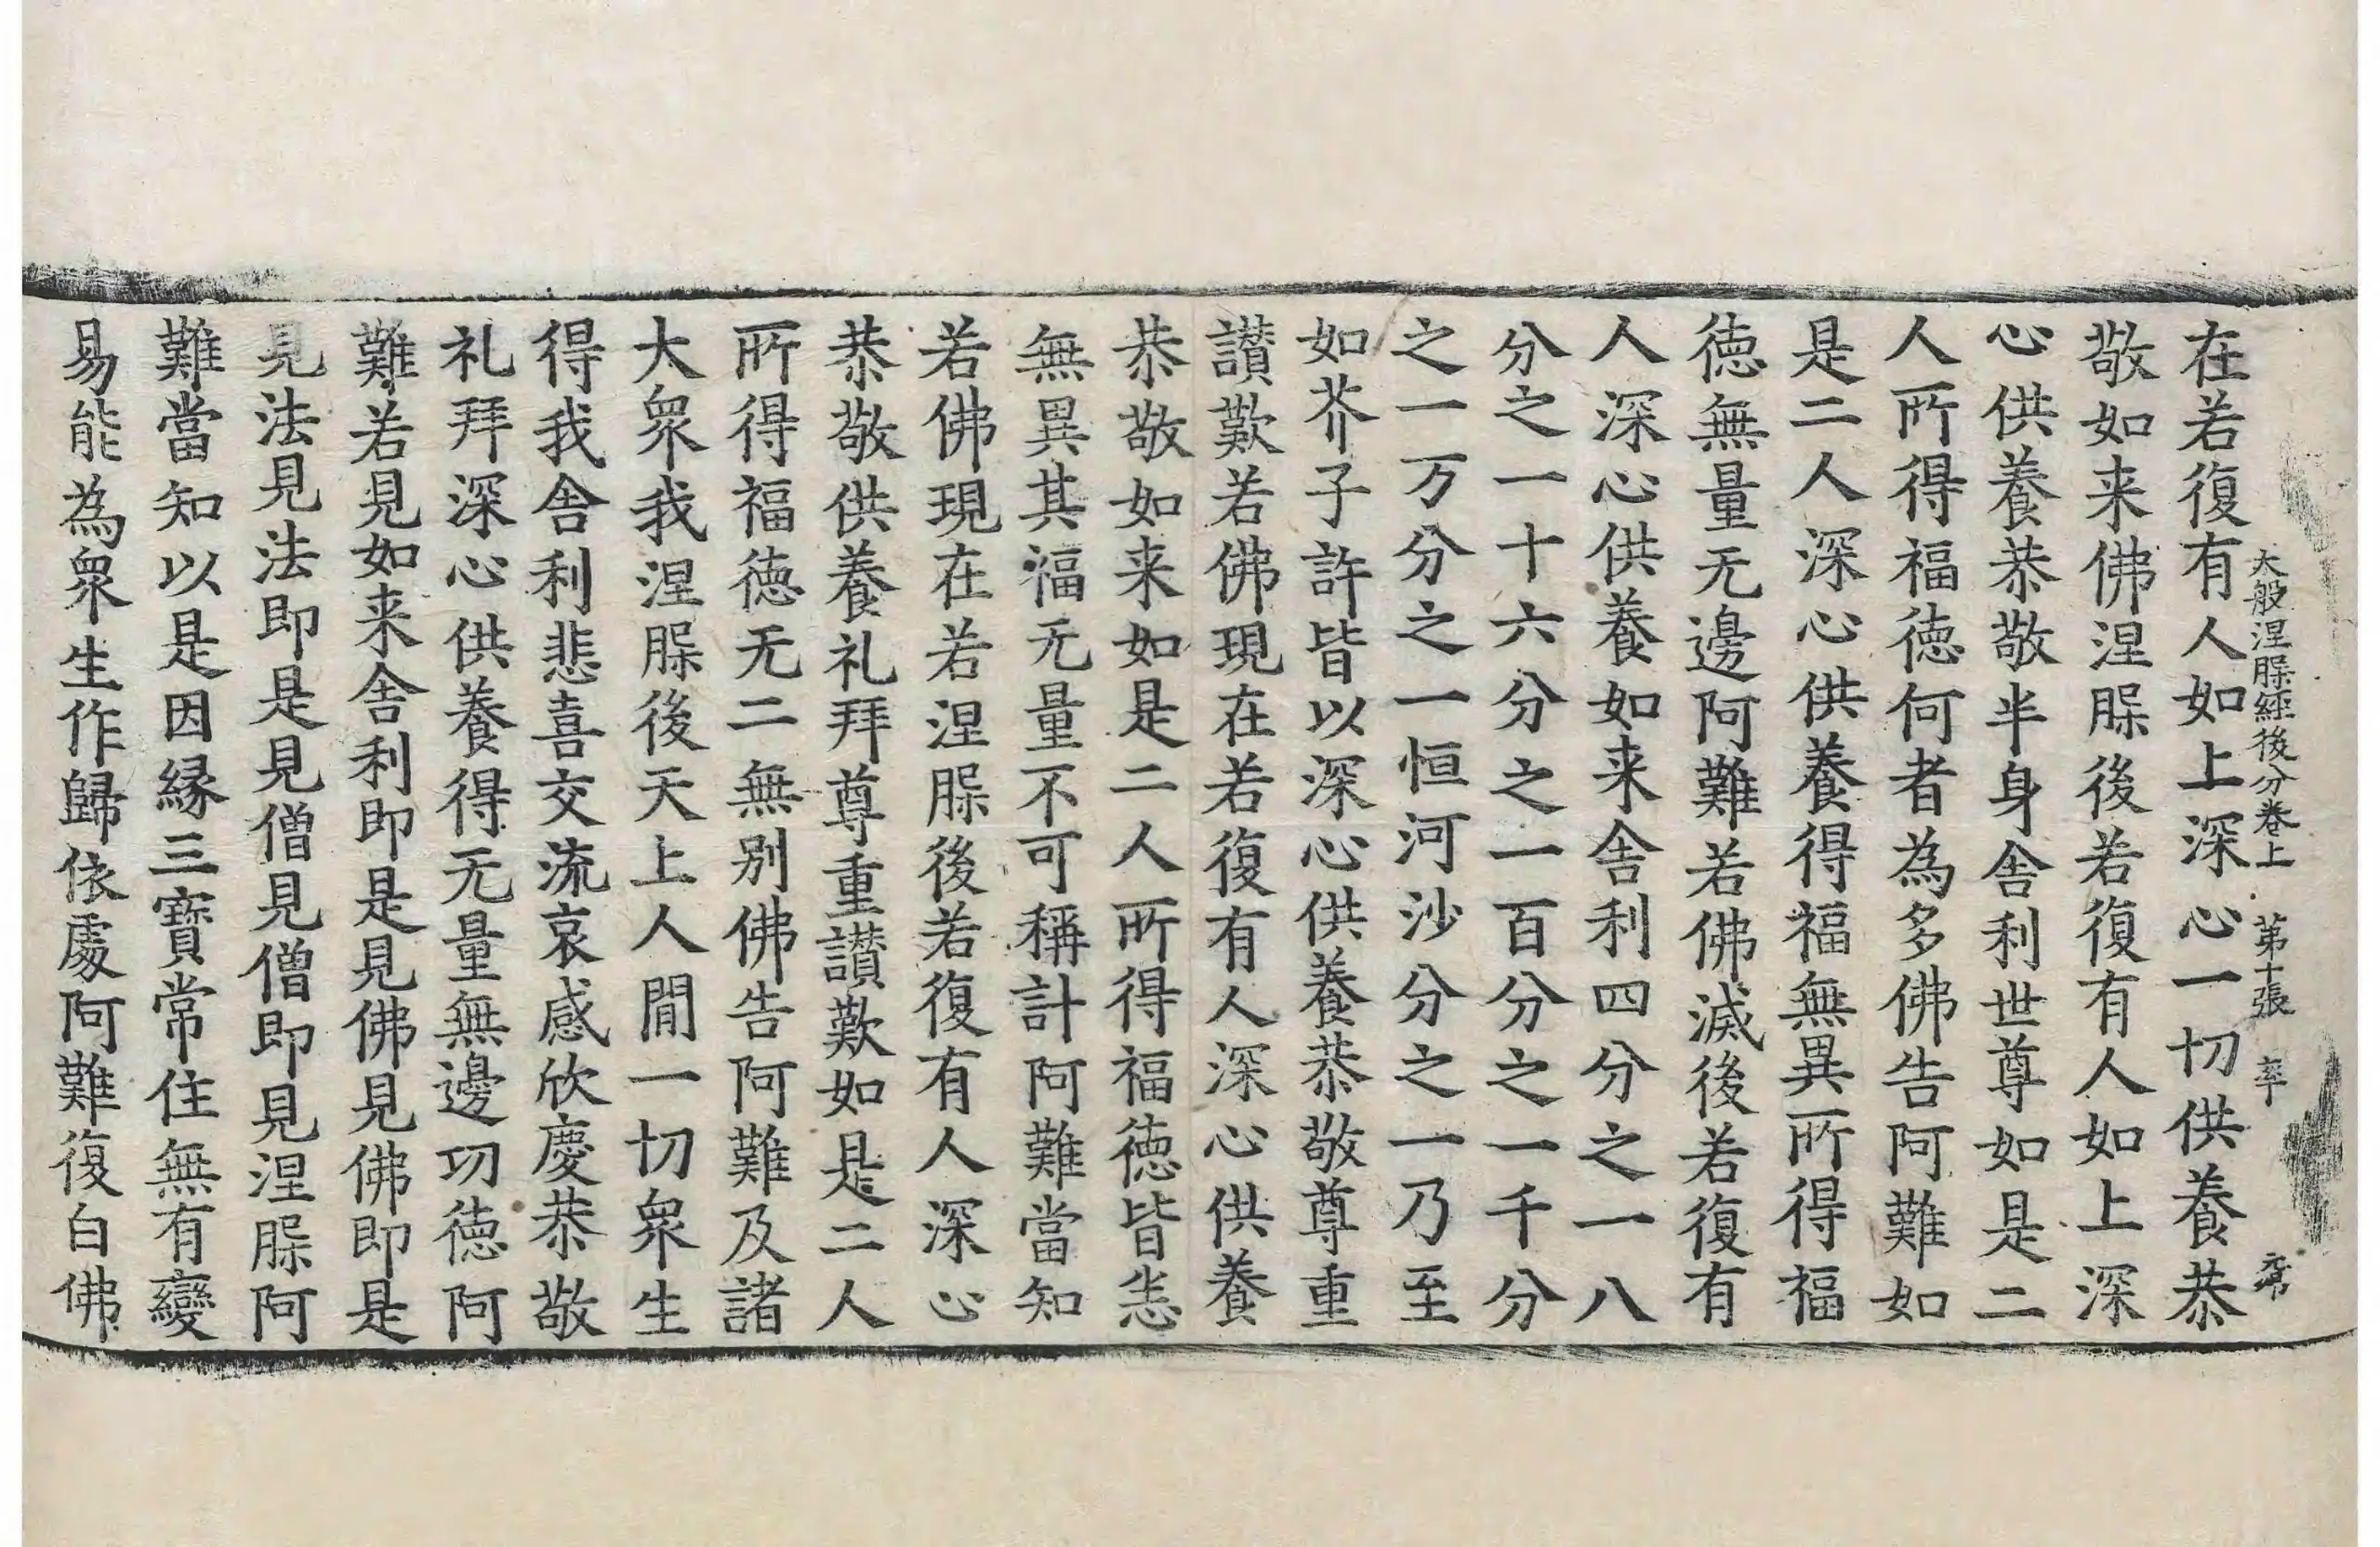 大般涅槃經後分卷上　第十張　率
在若復有人如上深心一切供養恭
敬如来佛涅槃後若復有人如上深
心供養恭敬半身舍利世尊如是二
人所得福德何者為多佛告阿難如
是二人深心供養得福無異所得福
德無量无邊阿難若佛滅後若復有
人深心供養如来舍利四分之一八
分之一十六分之一百分之一千分
之一万分之一恒河沙分之一乃至
如芥子許皆以深心供養恭敬尊重
讃歎若佛現在若復有人深心供養
恭敬如来如是二人所得福德皆悉
無異其福无量不可稱計阿難當知
若佛現在若涅槃後若復有人深心
恭敬供養礼拜尊重讃歎如是二人
所得福德无二無別佛告阿難及諸
大衆我涅槃後天上人間一切衆生
得我舍利悲喜交流哀感欣慶恭敬
礼拜深心供養得无量無邊功德阿
難若見如来舍利即是見佛見佛即是
見法見法即是見僧見僧即見涅槃阿
難當知以是因縁三寶常住無有變
易能為衆生作歸依處阿難復白佛